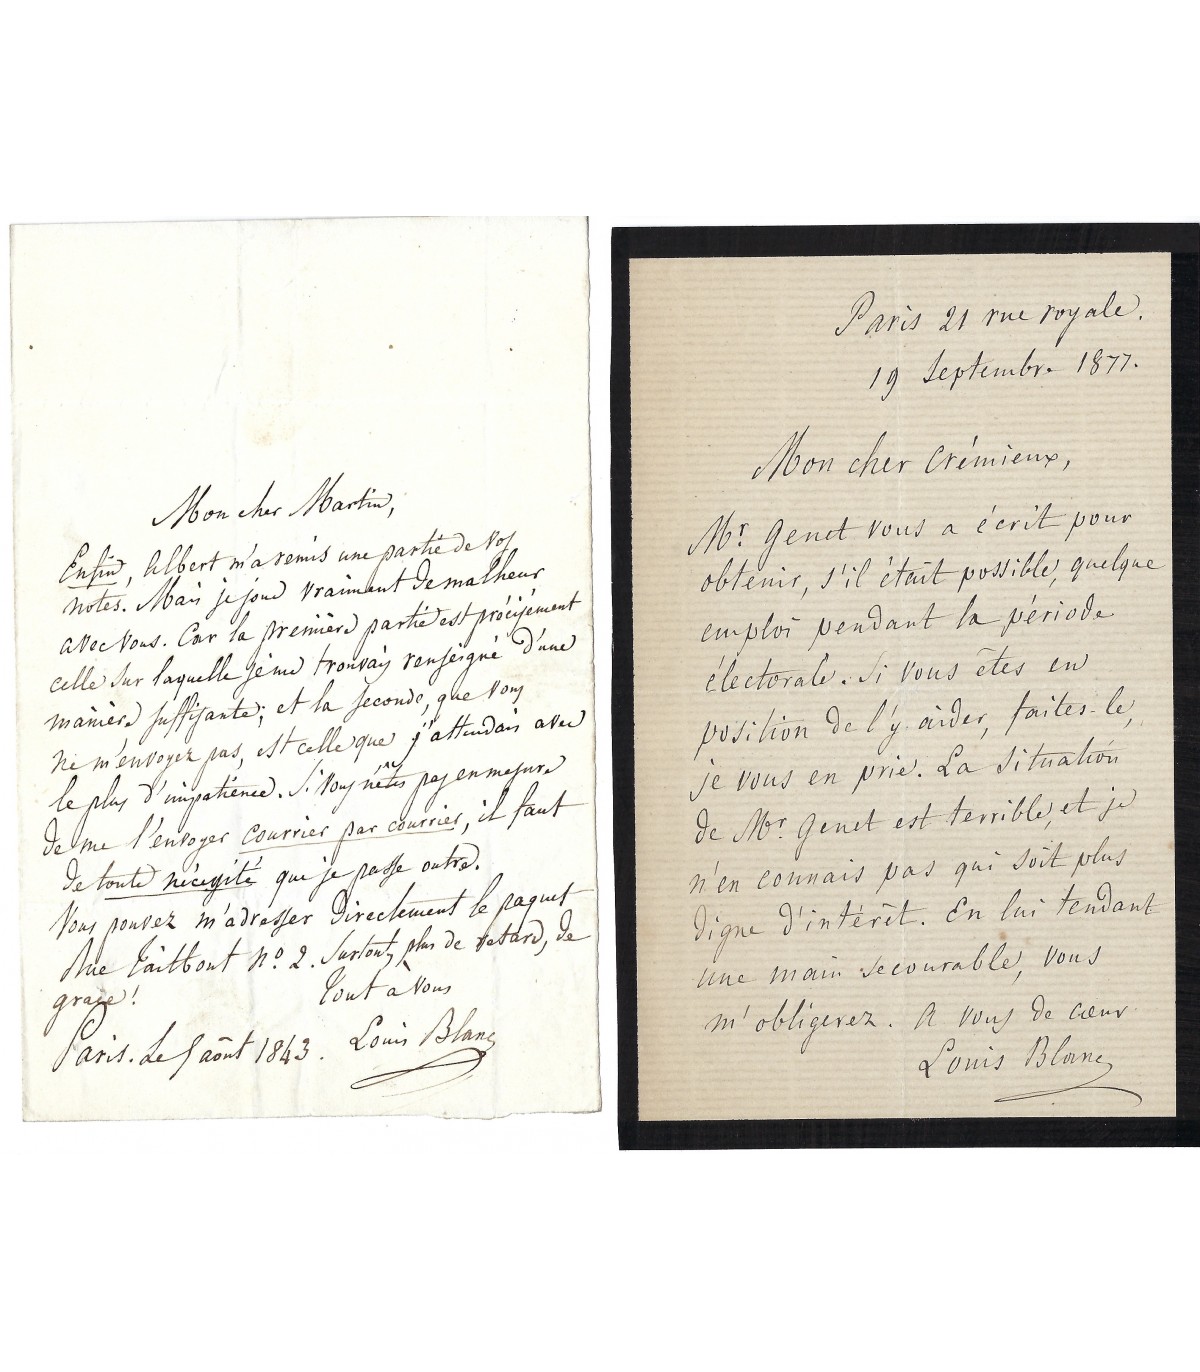 Mon cher Martin,
Enfin, Albert m'a remis une partie de vos
notes. Mais je joue vraiment de malheur
avec vous. Car la première partie est précisément
celle sur laquelle je me trouvais renseigné d'une
manière suffisante; et la seconde, que vous
ne m'envoyez pas, est celle que j'attendais avec
le plus d'impatience. Si vous n'êtes pas en mesure
de me l'envoyer courrier par courrier, il faut
de toute nécessité que je passe outre.
Vous pouvez m'adresser directement le paquet
Rue Taitbout no. 2. Surtout, plus de retard, de
grace!
Tout à vous
Paris. Le 5 août 1843.
Louis Blanc
Paris 21 rue royale.
19 Septembre 1877.
Mon cher Crémieux,
Mr. Genet vous a écrit pour
obtenir, s'il était possible, quelque
emploi pendant la période
électorale. Si vous êtes en
position de l'y aider, faites-le,
je vous en prie. La situation
de Mr. Genet est terrible, et je
n'en connais pas qui soit plus
digne d'intérêt. En lui tendant
une main secourable, vous
m'obligerez. A vous de cœur
Louis Blanc